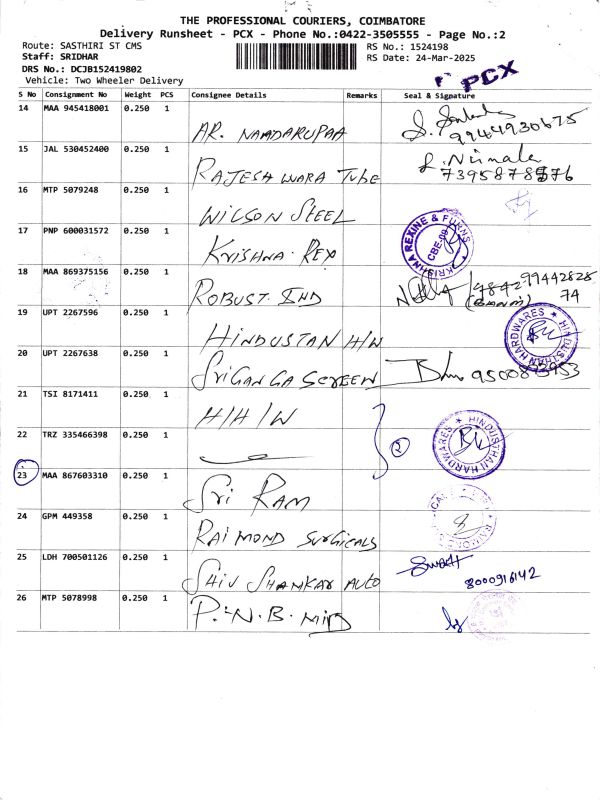 THE PROFESSIONAL COURIERS, COIMBATORE
Delivery Runsheet - PCX - Phone No.:0422-3505555 - Page No.:2
Route: SASTHIRI ST CMS
RS No.: 1524198
Staff: SRIDHAR
RS Date: 24-Mar-2025
DRS No.: DCJB152419802
Vehicle: Two Wheeler Delivery
PCX
S No Consignment No Weight PCS Consignee Details Remarks Seal & Signature
14 MAA 945418001 0.250 1 AR. NAADARUPAA 9944930675
15 JAL 530452400 0.250 1 RAJESHWARA Tube L. Nirmala
16 MTP 5079248 0.250 1 WILSON STEEL
17 PNP 600031572 0.250 1 KRISHNA. REX KRISHNA REXINE & FURNS CBE.
18 MAA 869375156 0.250 1 ROBUST IND 99442828
74
19 UPT 2267596 0.250 1 HINDUSTAN H/W HINDUSTHAN HARDWARES
20 UPT 2267638 0.250 1 SRI GANGA SCREEW
21 TSI 8171411 0.250 1 H/H/W
22 TRZ 335466398 0.250 1 2 HINDUSTHAN HARDWARES
23 MAA 867603310 0.250 1 Sri RAM
24 GPM 449358 0.250 1 RAIMOND SURGICALS
25 LDH 700501126 0.250 1 SHIV SHANKAR AUTO 8000916142
26 MTP 5078998 0.250 1 P.N.B. MID